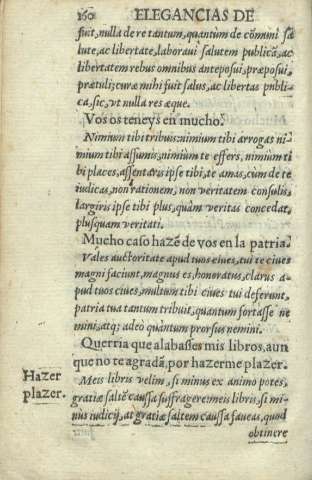 160 ELEGANCIAS DE
fuit, nulla de re tantum, quantum de cōmuni sa
lute, ac libertate, laboraui salutem publicā, ac
libertatem rebus omnibus anteposui, præposui,
prætuli; curæ mihi fuit salus, ac libertas publi-
ca, sic, vt nulla res æque.
Vos os teneys en mucho.
Nimium tibi tribuis: nimium tibi arrogas ni-
mium tibi assumis, nimiũm te effers, nimiũm ti
bi places, assentaris ipse tibi, te amas, cum de te
iudicas, non rationem, non veritatem consulis,
largiris ipse tibi plus, quàm veritas concedat,
plusquam veritati.
Mucho caso hazē de vos en la patria.
Vales auctoritate apud tuos ciues, tui te ciues
magni faciunt, magnus es, honoratus, clarus a-
pud tuos ciues, multum tibi ciues tui deferunt,
patria tua tantum tribuit, quantum fortasse ne
mini, atq; adeo quantum prorsus nemini.
Querria que alabasses mis libros, aun
que no te agradā, por hazerme plazer.
Hazer plazer.
Meis libris velim, si minus ex animo potes,
gratiæ saltē caussa suffragere: meis libris, si mi-
nus iudicij, at gratiæ saltem caussa faueas, quod
obtinere